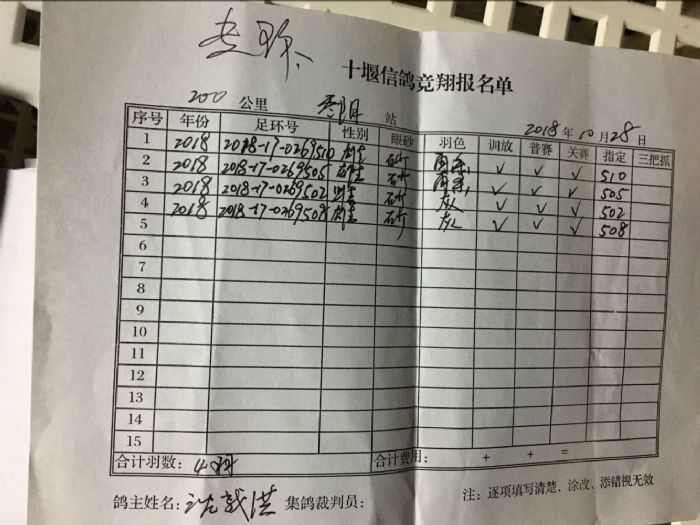 十堰信鸽竞翔报名单
200 公里 站 2018 年 10 月 28 日
序号 年份 足环号 性别 眼砂 羽色 训放 普赛 关赛 指定 三把抓
1 2018 2018-17-0269510 砂 √ √ √ 510
2 2018 2018-17-0269505 砂 √ √ √ 505
3 2018 2018-17-0269502 砂 灰 √ √ √ 502
4 2018 2018-17-0269508 砂 灰 √ √ √ 508
5
6
7
8
9
10
11
12
13
14
15
合计羽数: 4羽 合计费用: + + =
鸽主姓名: 集鸽裁判员: 注: 逐项填写清楚, 涂改、添错视无效